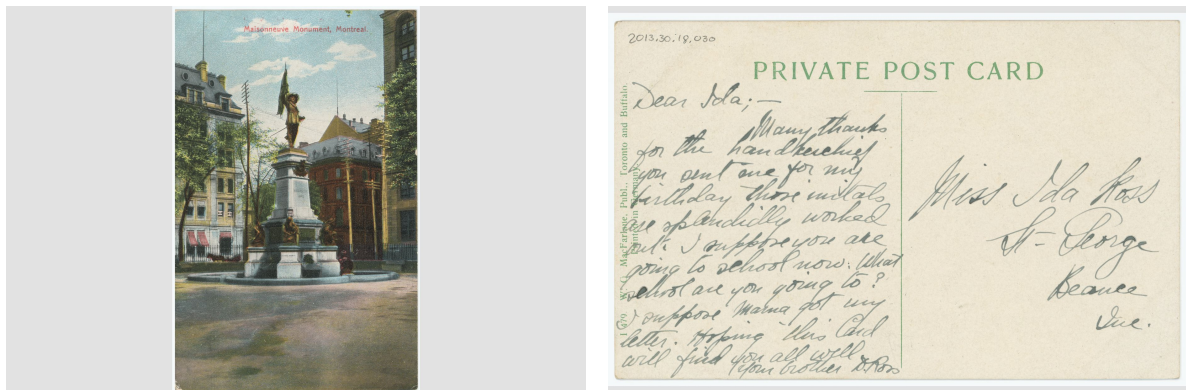 Maisonneuve Monument, Montreal.
2013.30.18.030
PRIVATE POST CARD
MacFarlane, Publ., Toronto and Buffalo.
Dear Ida;—
Many thanks
for the handkerchief
you sent me for my
birthday those initals
are splendidly worked
out. I suppose you are
going to school now. What
school are you going to?
I suppose Mama got my
letter. Hoping this Card
will find you all well
Your brother D Ross
Miss Ida Ross
St-George
Beauce
Que.